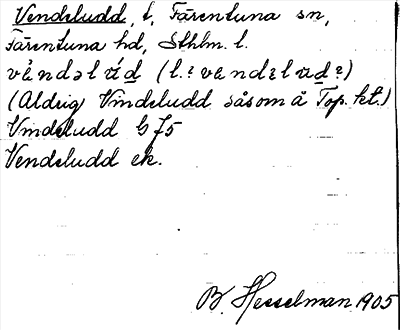 Vendeludd, t, Färentuna sn,
Färentuna hd, Sthlm. l.
vèndəlúd (l. ? vendəlud ?)
(Aldrig Vindeludd såsom å Top. kt.)
Vindeludd G 75
Vendeludd ek.
B. Hesselman 1905